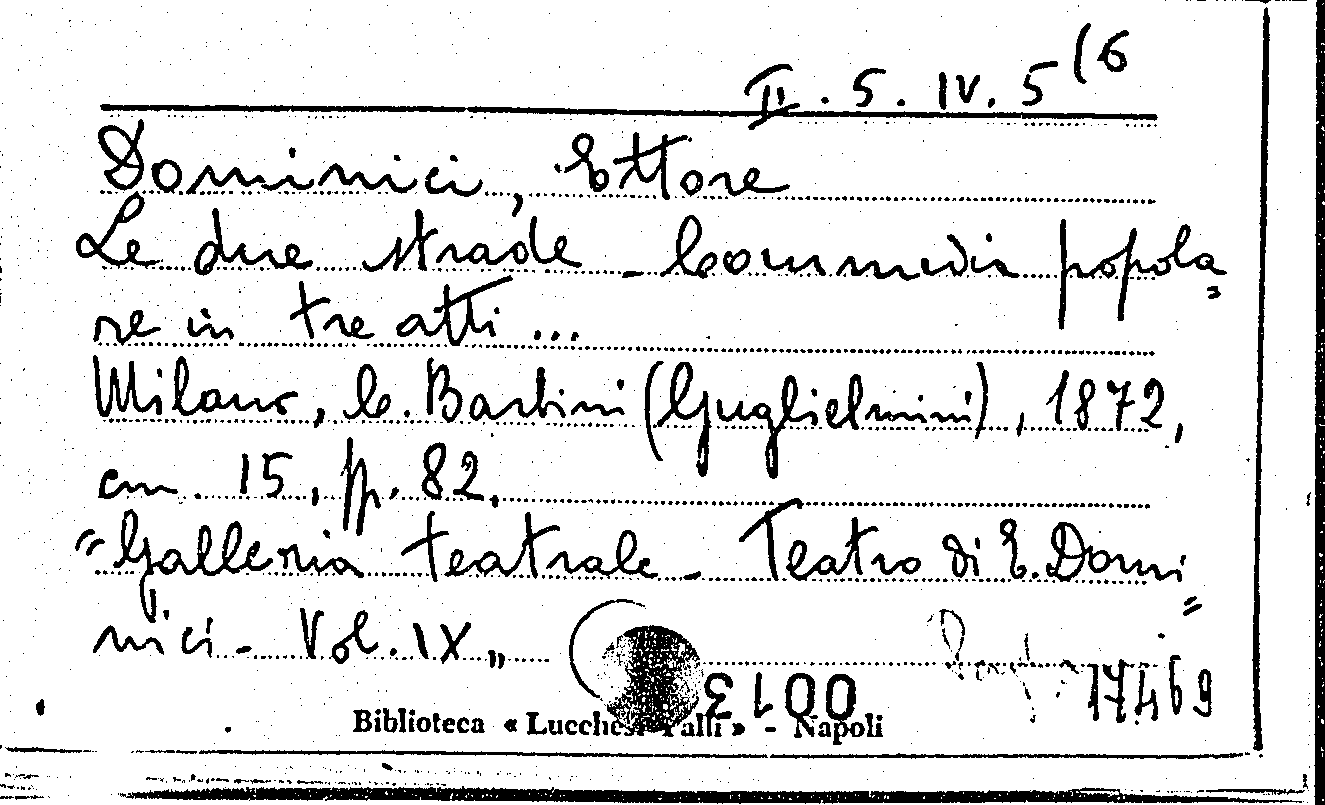 II. 5. IV. 5 (6
Dominici, Ettore
Le due strade - Commedia popola=
re in tre atti...
Milano, C. Barbini (Guglielmini), 1872,
cm. 15, pp. 82.
"Galleria teatrale - Teatro di E. Domi=
nici - Vol. IX„
17469
0013
Biblioteca « Lucchesi Palli » - Napoli